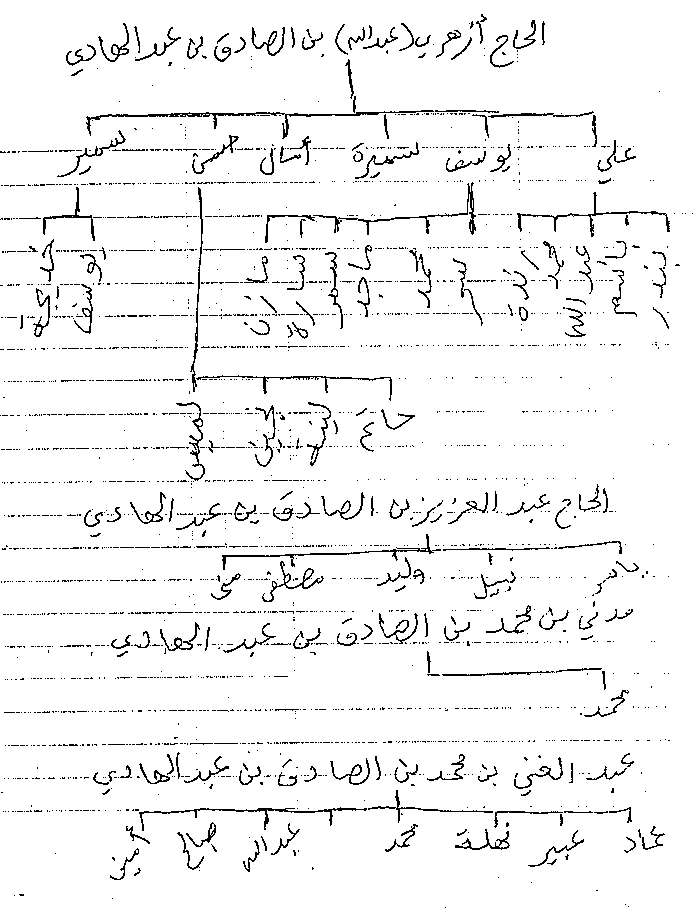 الحاج أزهري (عبدالله) بن الصادق بن عبدالهادي
علي يوسف سميرة أمال حسن سمير
بندر باسم عبدالله محمد رندة سحر محمد ماجد سمر سارة مازن يوسف خديجة
حاتم لميس
الحاج عبد العزيز بن الصادق بن عبد الهادي
ياسر نبيل وليد مصطفى منى
مدني بن محمد بن الصادق بن عبد الهادي
محمد
عبد الغني بن محمد بن الصادق بن عبدالهادي
عماد عبير نهلة محمد عبدالله صالح